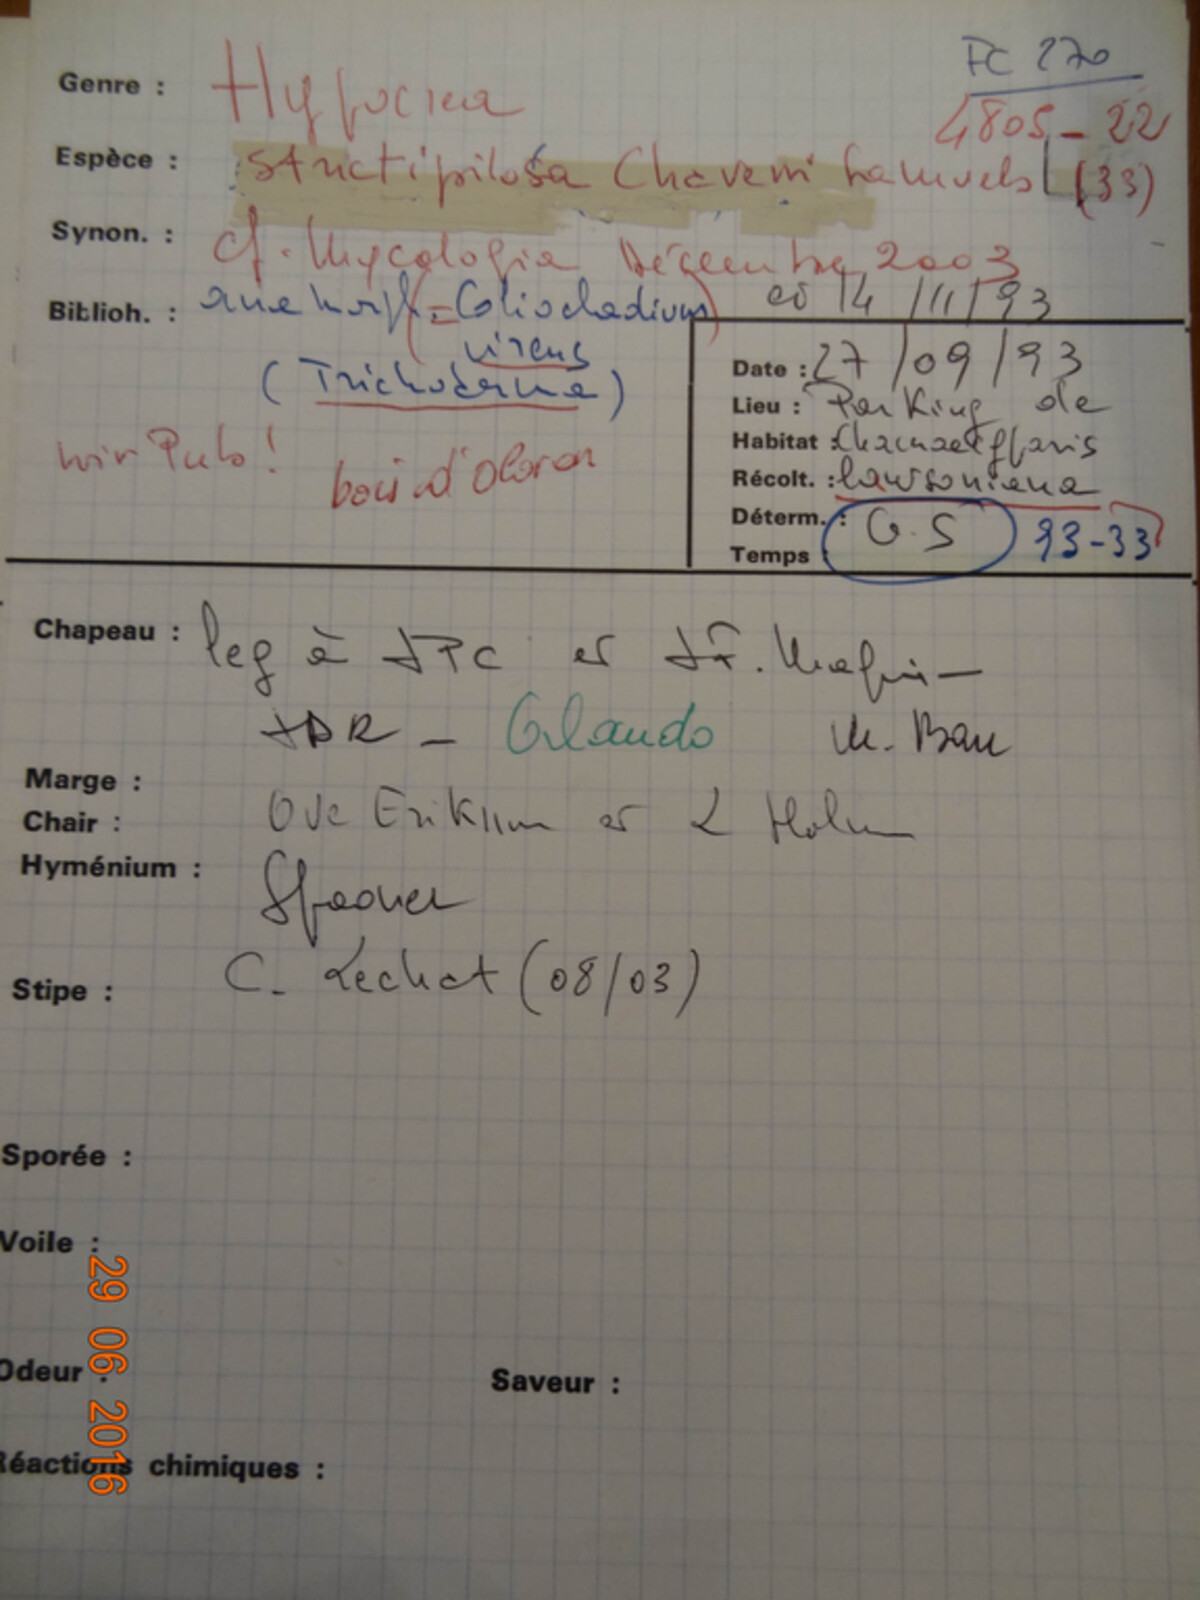 FC 270
Genre : Hypocrea
4805-22
Espèce : strictipilosa Chaverri Samuels (33)
Synon. : cf. Mycologia Décembre 2003
Biblioh. : anamorf = Gliocladium
virens
(Trichoderma)
et 14/11/93
voir Pub!
bois d'Oloron
Date : 27/09/93
Lieu : Parking de
Habitat : Chamaecyparis
Récolt. : lawsoniana
Déterm. : G.S 93-33
Temps :
Chapeau : leg à JPC et JF. Magni-
JDR - Orlando M. Bon
Marge :
Chair : Ove Eriksson et L Holm
Hyménium : Spooner
Stipe : C. Lechat (08/03)
Sporée :
Voile :
Odeur :
Saveur :
Réactions chimiques :
29 06 2016